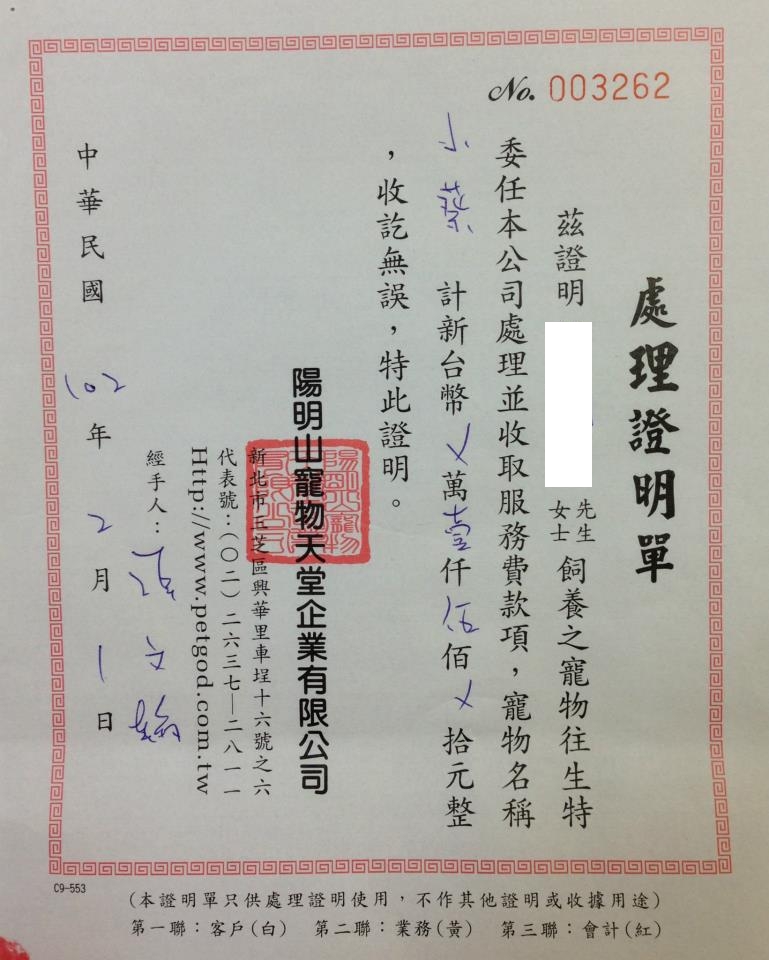 No. 003262
處理證明單
茲證明 先生女士飼養之寵物往生特
委任本公司處理並收取服務費款項，寵物名稱
小葵 計新台幣㐅萬壹仟伍佰㐅拾元整
，收訖無誤，特此證明。
陽明山寵物天堂企業有限公司
新北市三芝區興華里車埕十六號之六
代表號：(〇二)二六三七—二八一一
Http://www.petgod.com.tw
經手人： 文
中華民國 102年2月1日
C9-553
(本證明單只供處理證明使用，不作其他證明或收據用途)
第一聯：客戶(白) 第二聯：業務(黃) 第三聯：會計(紅)